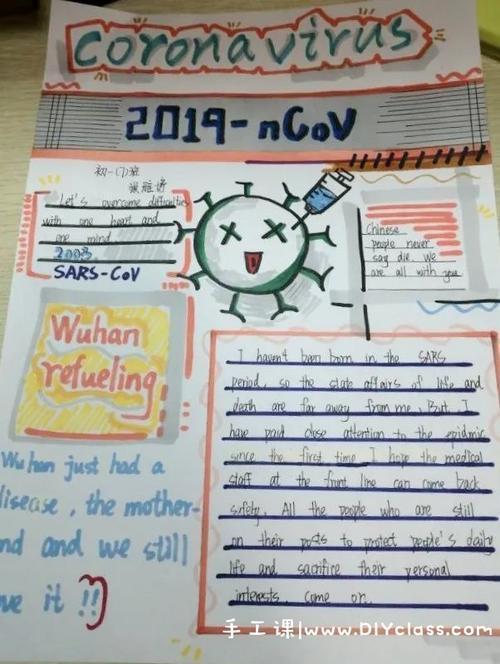 coronavirus
2019-nCoV
初一(7)班
Let's overcome difficulties
with one heart and
one mind
2003
SARS-CoV
Chinese
people never
say die. We
are all with you
Wuhan
refueling
I haven't been born in the SARS
period, so the state affairs of life and
death are far away from me. But I
have paid close attention to the epidmic
since the first time I hope the medical
staff at the front line can come back
safety. All the people who are still
on their posts to protect people's daily
life and sacrifice their personal
interests, come on.
Wuhan just had a
disease, the mother-
nd and we still
ve it !!
手工课|www.DIYclass.com